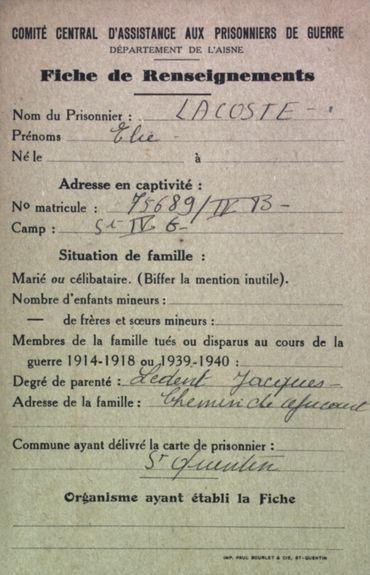 COMITÉ CENTRAL D'ASSISTANCE AUX PRISONNIERS DE GUERRE
DÉPARTEMENT DE L'AISNE
Fiche de Renseignements
Nom du Prisonnier : LACOSTE -
Prénoms Elie -
Né le à
Adresse en captivité :
No matricule : 75689/IV B -
Camp : St IV G -
Situation de famille :
Marié ou célibataire. (Biffer la mention inutile).
Nombre d'enfants mineurs :
— de frères et sœurs mineurs :
Membres de la famille tués ou disparus au cours de la
guerre 1914-1918 ou 1939-1940 :
Degré de parenté : Ledent Jacques -
Adresse de la famille : Chemin de
Commune ayant délivré la carte de prisonnier :
St Quentin
Organisme ayant établi la Fiche
IMP. PAUL BOURLET & CIE, ST-QUENTIN